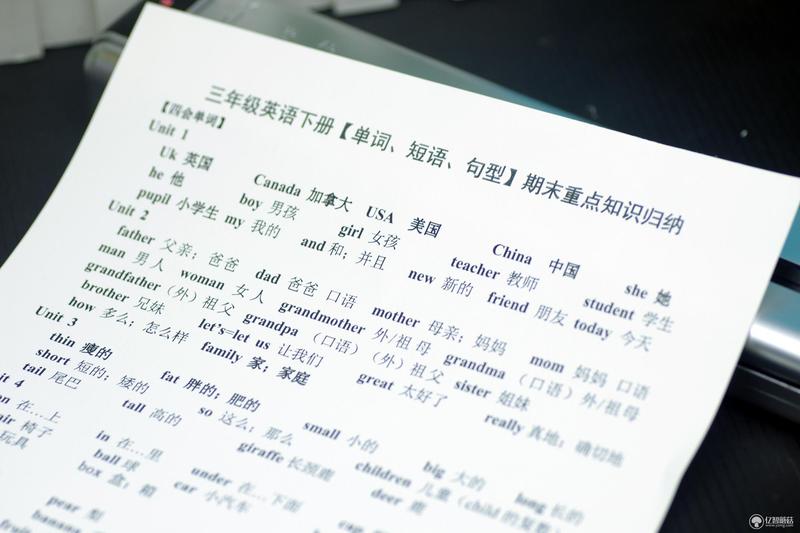 三年级英语下册【单词、短语、句型】期末重点知识归纳
【四会单词】
Unit 1
Uk 英国 Canada 加拿大 USA 美国 China 中国 she 她
he 他 boy 男孩 girl 女孩 teacher 教师 student 学生
pupil 小学生 my 我的 and 和;并且 new 新的 friend 朋友 today 今天
Unit 2
father 父亲;爸爸 dad 爸爸 口语 mother 母亲;妈妈 mom 妈妈 口语
man 男人 woman 女人 grandmother 外/祖母 grandma (口语)外/祖母
grandfather(外)祖父 grandpa (口语)(外)祖父 sister 姐妹
brother 兄妹 let's=let us 让我们 great 太好了 really 真地;确切地
how 多么;怎么样 family 家;家庭
Unit 3
thin 瘦的 fat 胖的;肥的 small 小的 big 大的 long 长的
short 短的;矮的 tall 高的 so 这么;那么 children 儿童(child 的复数
tail 尾巴 giraffe 长颈鹿 deer 鹿
it 4
在…上 in 在…里 under 在…下面
椅子 ball 球 car 小汽车 cap
玩具 box 盒;箱
pear 梨
banana
亿智蘑菇